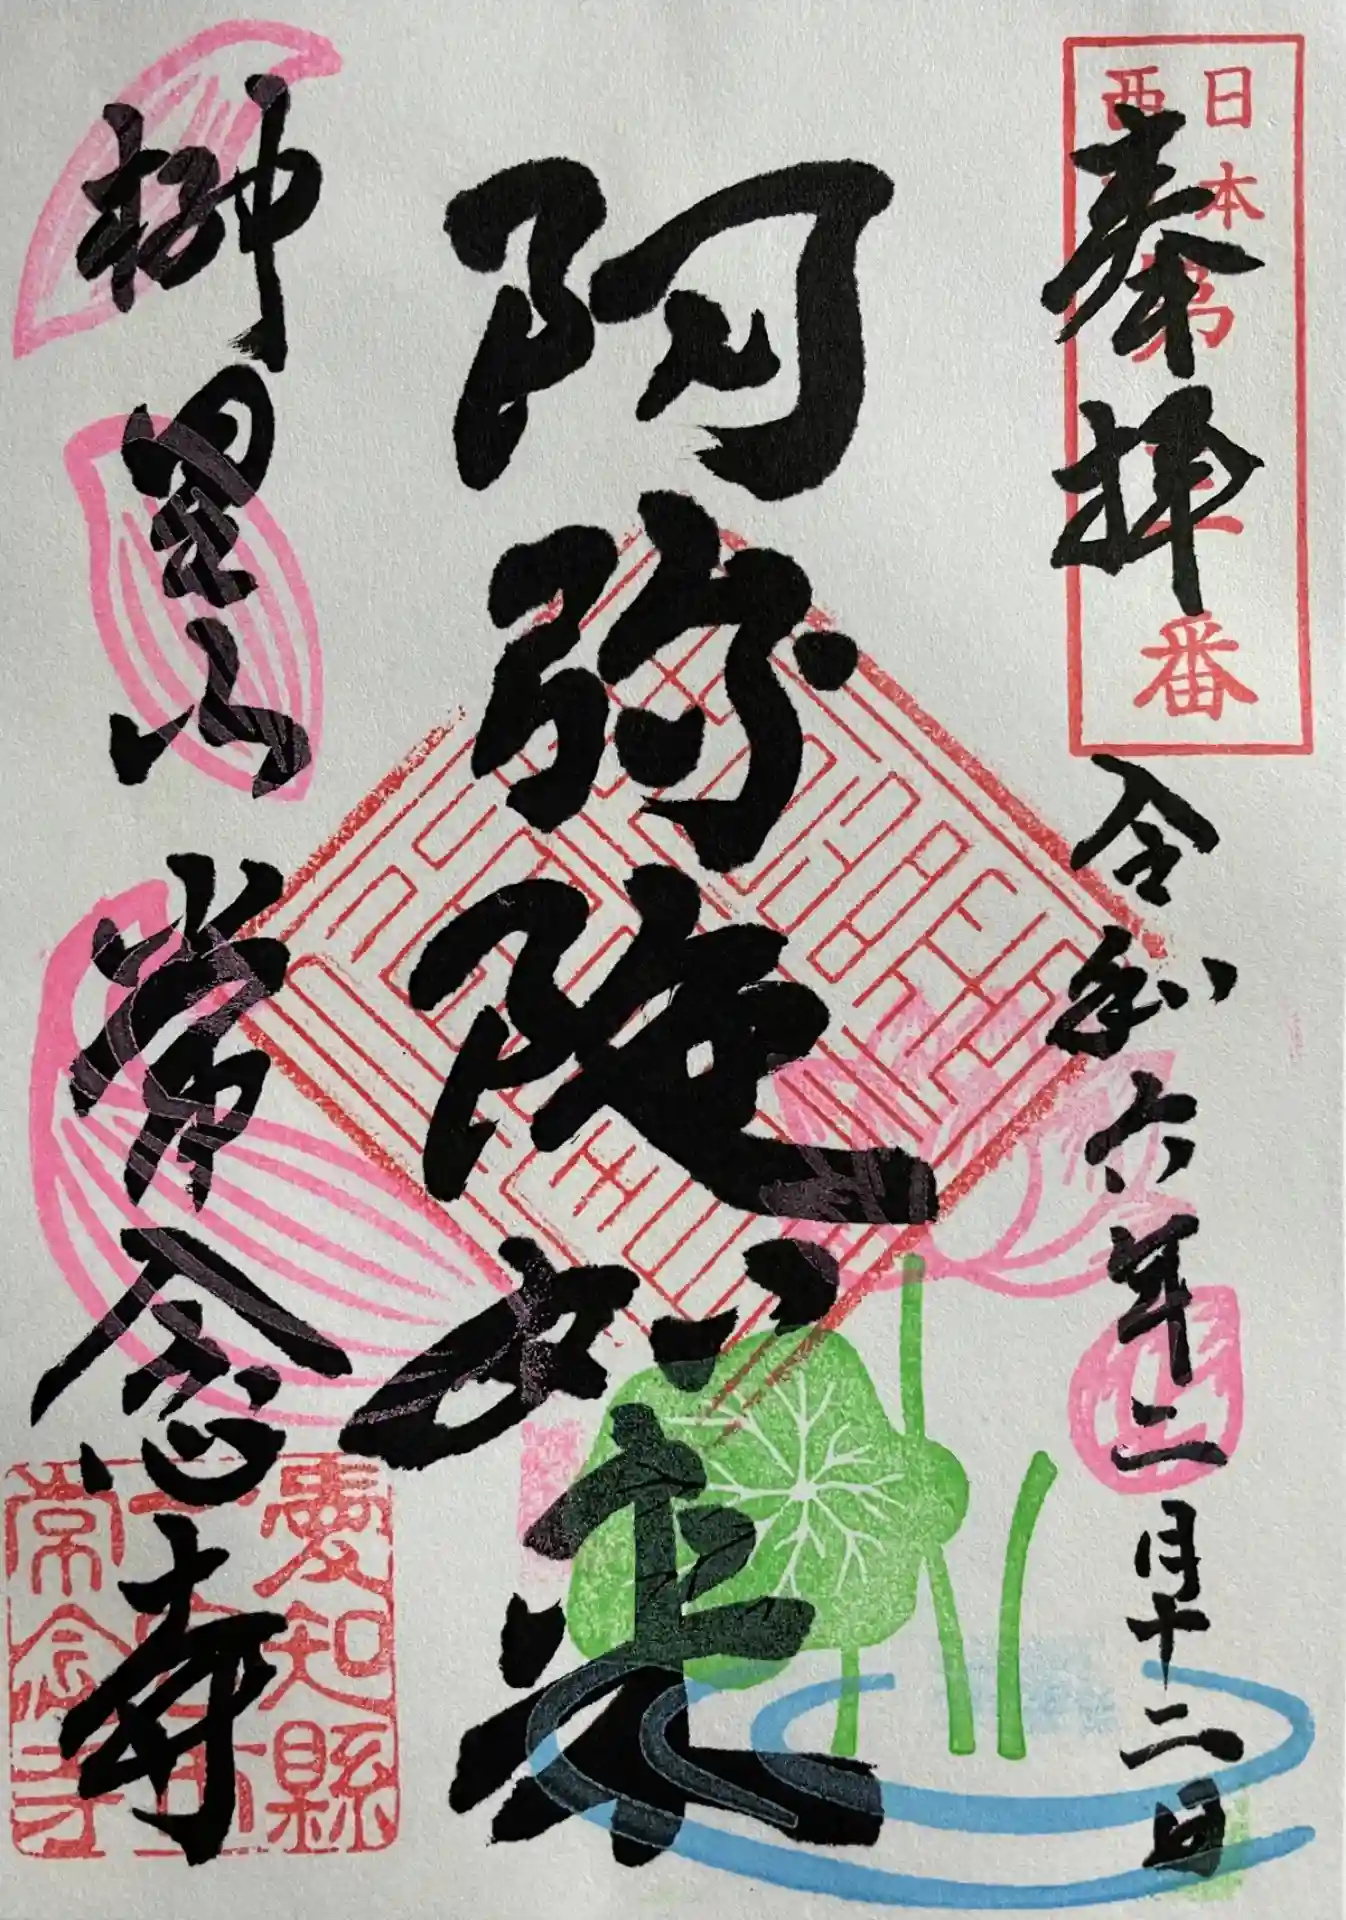 日本
番
奉拝
令和六年二月十二日
阿弥陀如来
柳星山 常念寺
愛知縣
常念寺